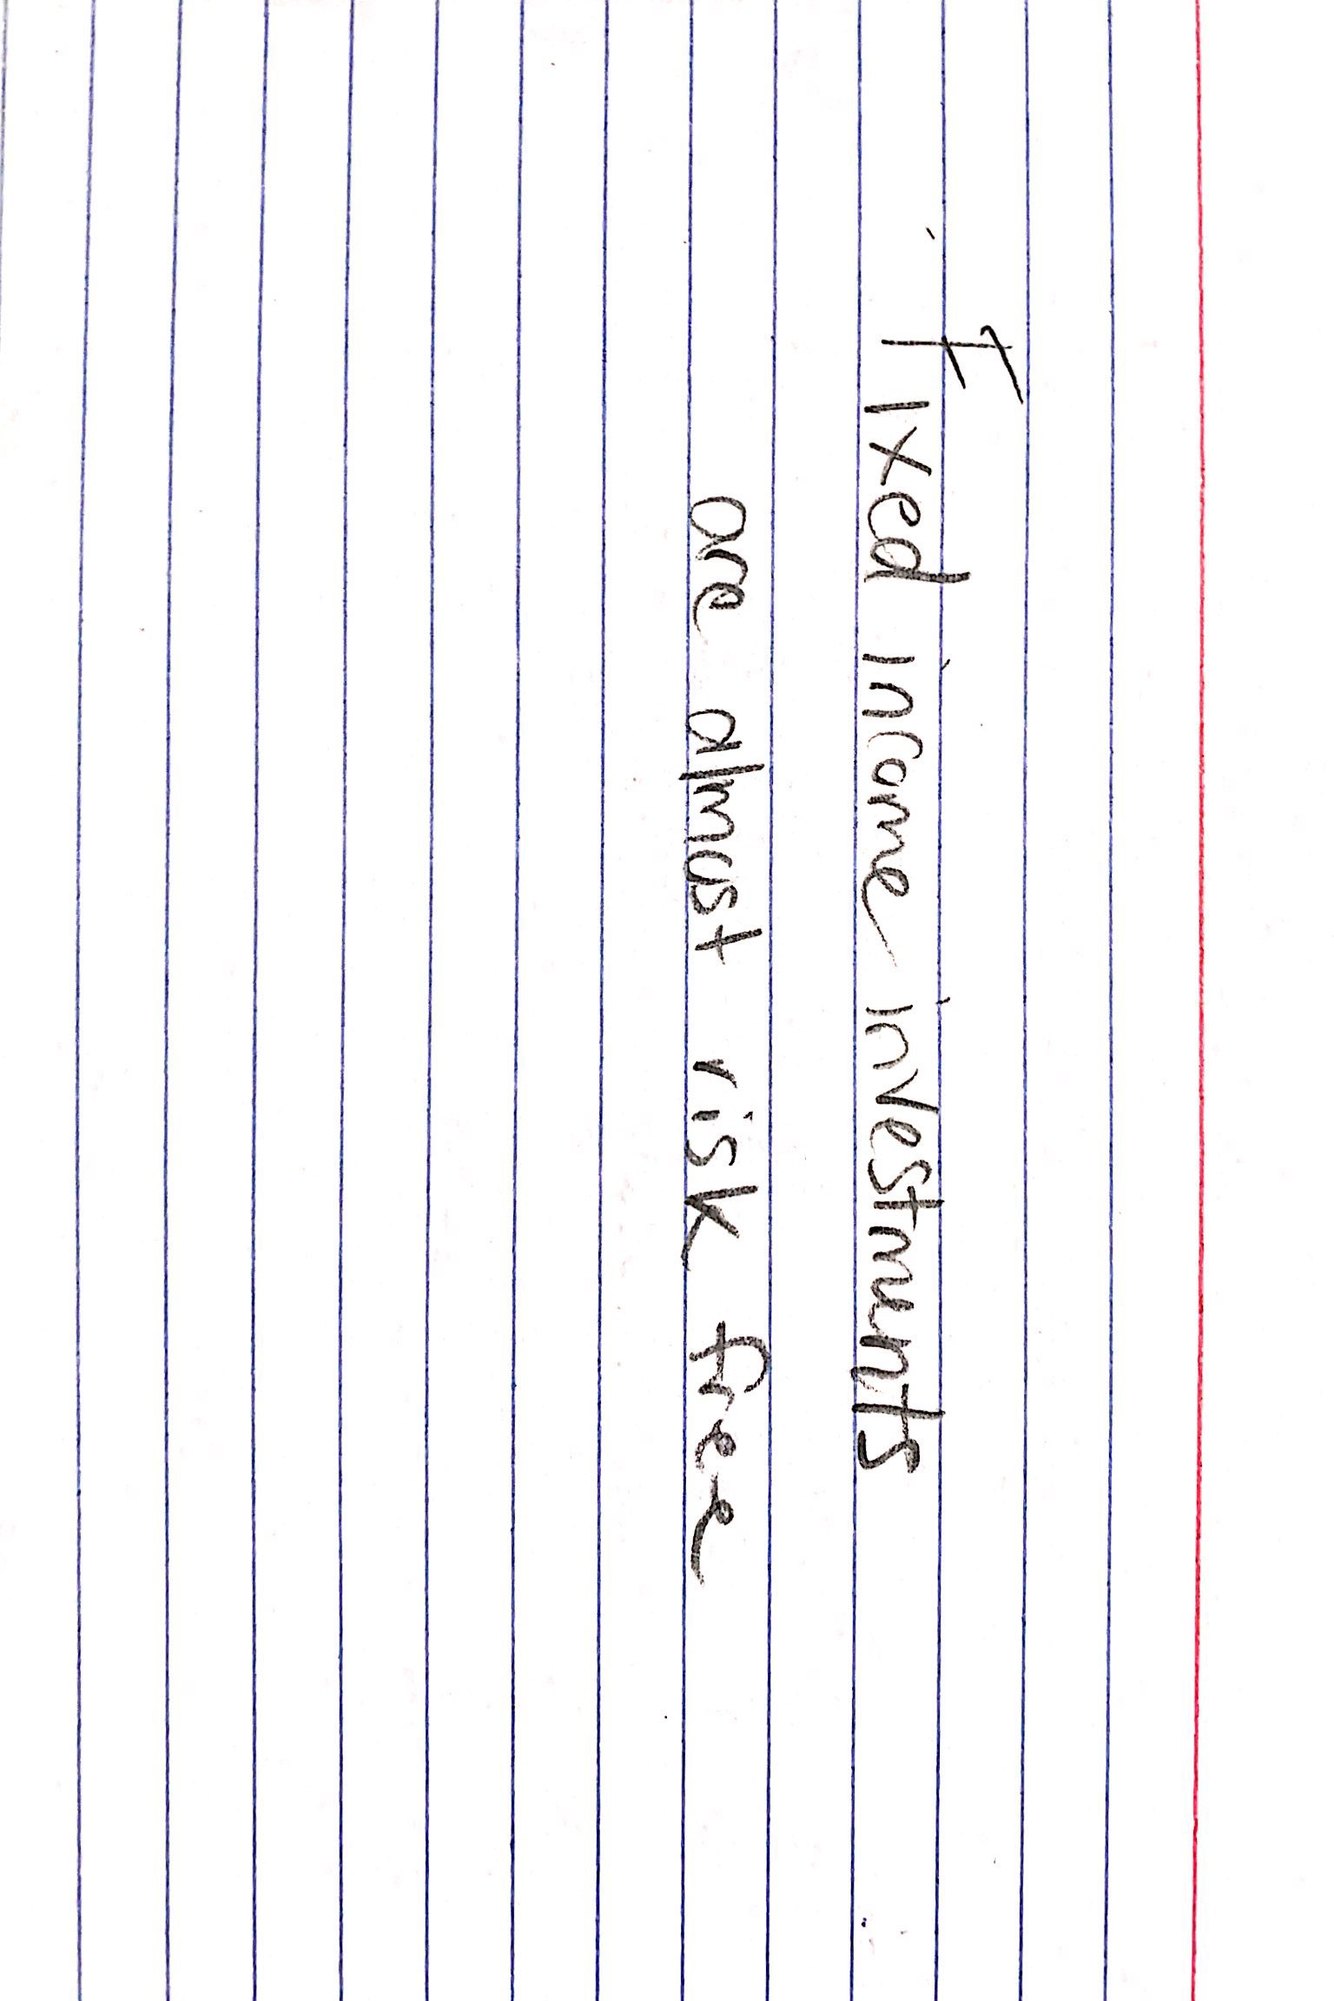 Fixed income investments
are almost risk free